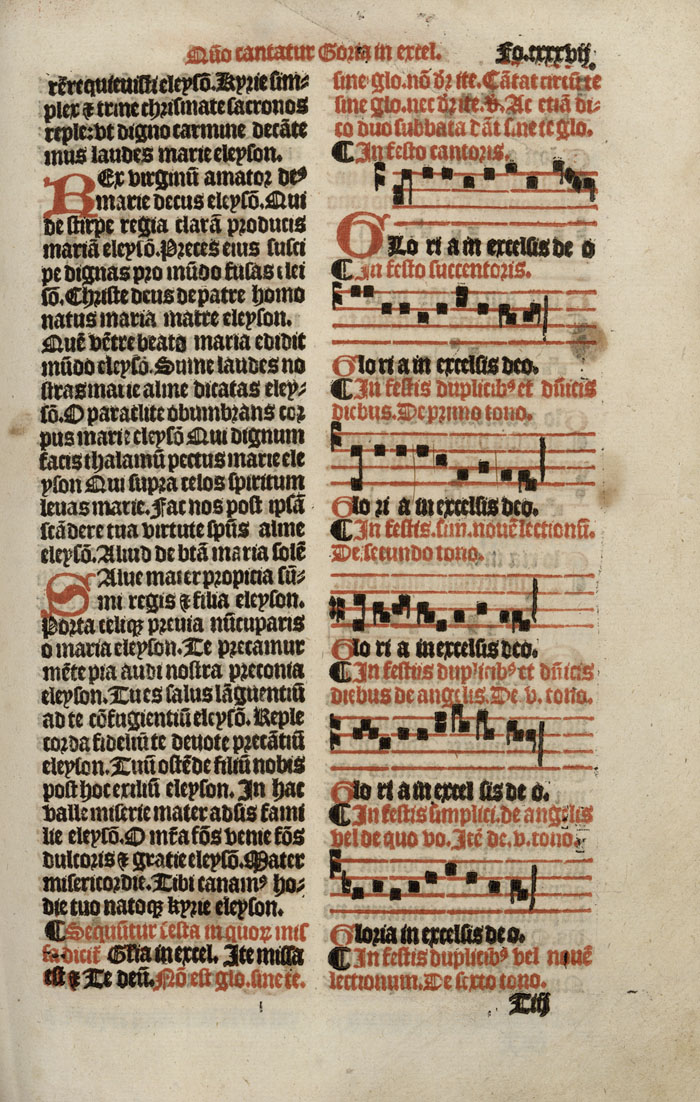 Qño cantatur Goria in excel. Fo.cxxxvij
rērequieuisti eleysō.Kyrie sim-
plex ⁊ trine chrismate sacronos
reple:vt digno carmine decāte
mus laudes marie eleyson.
REx virginū amator deꝰ
marie decus eleysō.Qui
de stirpe regia clarā producis
mariā eleysō.Preces eius susci
pe dignas pro mūdo fusas elei
sō.Christe deus de patre homo
natus maria matre eleyson.
Quē vētre beato maria edidit
mūdo eleysō.Sume laudes no
stras marie alme dicatas eley-
sō.O paraclite obumbrans cor
pus marie eleysō Qui dignum
facis thalamū pectus marie ele
yson Qui supra celos spiritum
leuas marie. Fac nos post ipsā
scādere tua virtute spūs alme
eleysō.Aliud de btā maria solē
SAlue mater propicia sū-
mi regis ⁊ filia eleyson.
Porta celiqꝫ preuia nūcuparis
o maria eleyson. Te precamur
mēte pia audi nostra preconia
eleyson. Tu es salus lāguentiū
ad te cōfugientiū eleysō. Reple
corda fideliū te deuote precātiū
eleyson. Tuū ostēde filiū nobis
post hoc exiliū eleyson. In hac
valle miserie mater adsis fami
lie eleysō.O mr̄a fōs venie fōs
dulcoris ⁊ gratie eleysō.Mater
misericordie. Tibi canamꝰ ho-
die tuo natoqꝫ kyrie eleyson.
¶ Sequitur festa in quorꝫ mis
sa dicit̄ Glīa in excel. Ite missa
est ⁊ Te deū. Nō est glo. sine te.
sine glo.nō dr̄ ite. Cātat circū te
sine glo.nec dr̄ ite.V. Ac etiā di-
co duo sabbata dāt sine te glo.
¶ In festo cantoris.
GLo ri a in excelsis de o
¶ In festo succentoris.
Glo ri a in excelsis deo.
¶ In festis duplicibꝰ et dn̄icis
diebus. De primo tono.
Glo ri a in excelsis deo.
¶ In festis.sim.nouē lectionū.
De secundo tono.
Glo ri a in excelsis deo.
¶ In festis duplicibꝰ et dn̄icis
diebus de angelis. De .v. tono.
Glo ri a in excel sis de o.
¶ In festis simplici.de angelis
vel de quo vo. Itē de.v.tono.
Gloria in excelsis de o.
¶ In festis duplicibꝰ vel nouē
lectionum. De sexto tono.
T iij